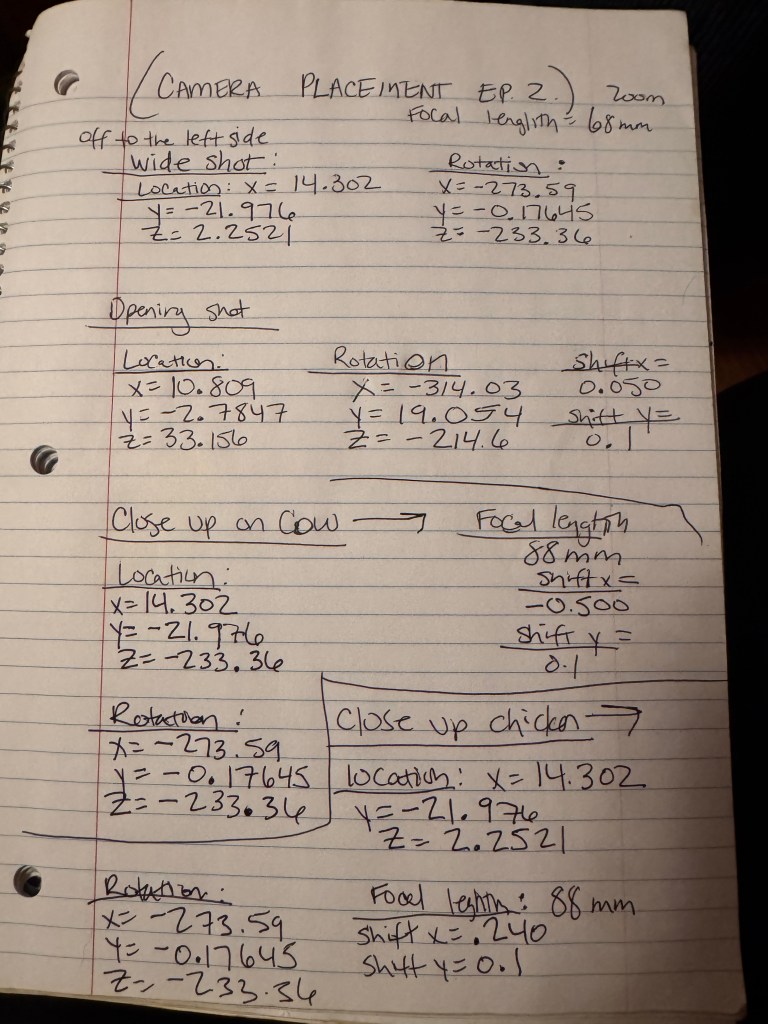 (CAMERA PLACEMENT EP. 2.) zoom
Focal lenglth = 68mm
off to the left side
Wide shot:
Location: X = 14.302
Y = -21.976
Z = 2.2521
Rotation:
X = -273.59
Y = -0.17645
Z = -233.36
Opening shot
Location:
X = 10.809
Y = -2.7847
Z = 33.156
Rotation
X = -314.03
Y = 19.054
Z = -214.6
Shift x =
0.050
Shift Y =
0.1
Close up on Cow →
Location:
X = 14.302
Y = -21.976
Z = -233.36
Focal length
88mm
Shift x =
-0.500
Shift y =
0.1
Rotation:
X = -273.59
Y = -0.17645
Z = -233.36
Close up chicken →
location: X = 14.302
Y = -21.976
Z = 2.2521
Rotation:
X = -273.59
Y = -0.17645
Z = -233.36
Focal leghth: 88mm
Shift x = .240
Shift y = 0.1